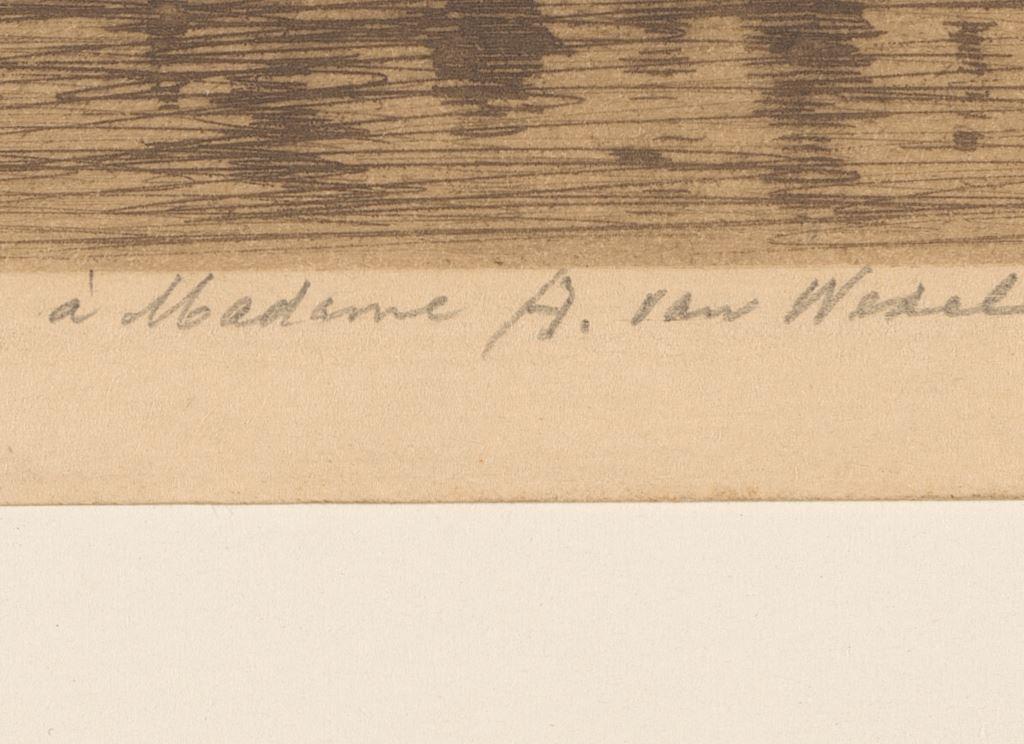 à Madame A. van Wedel